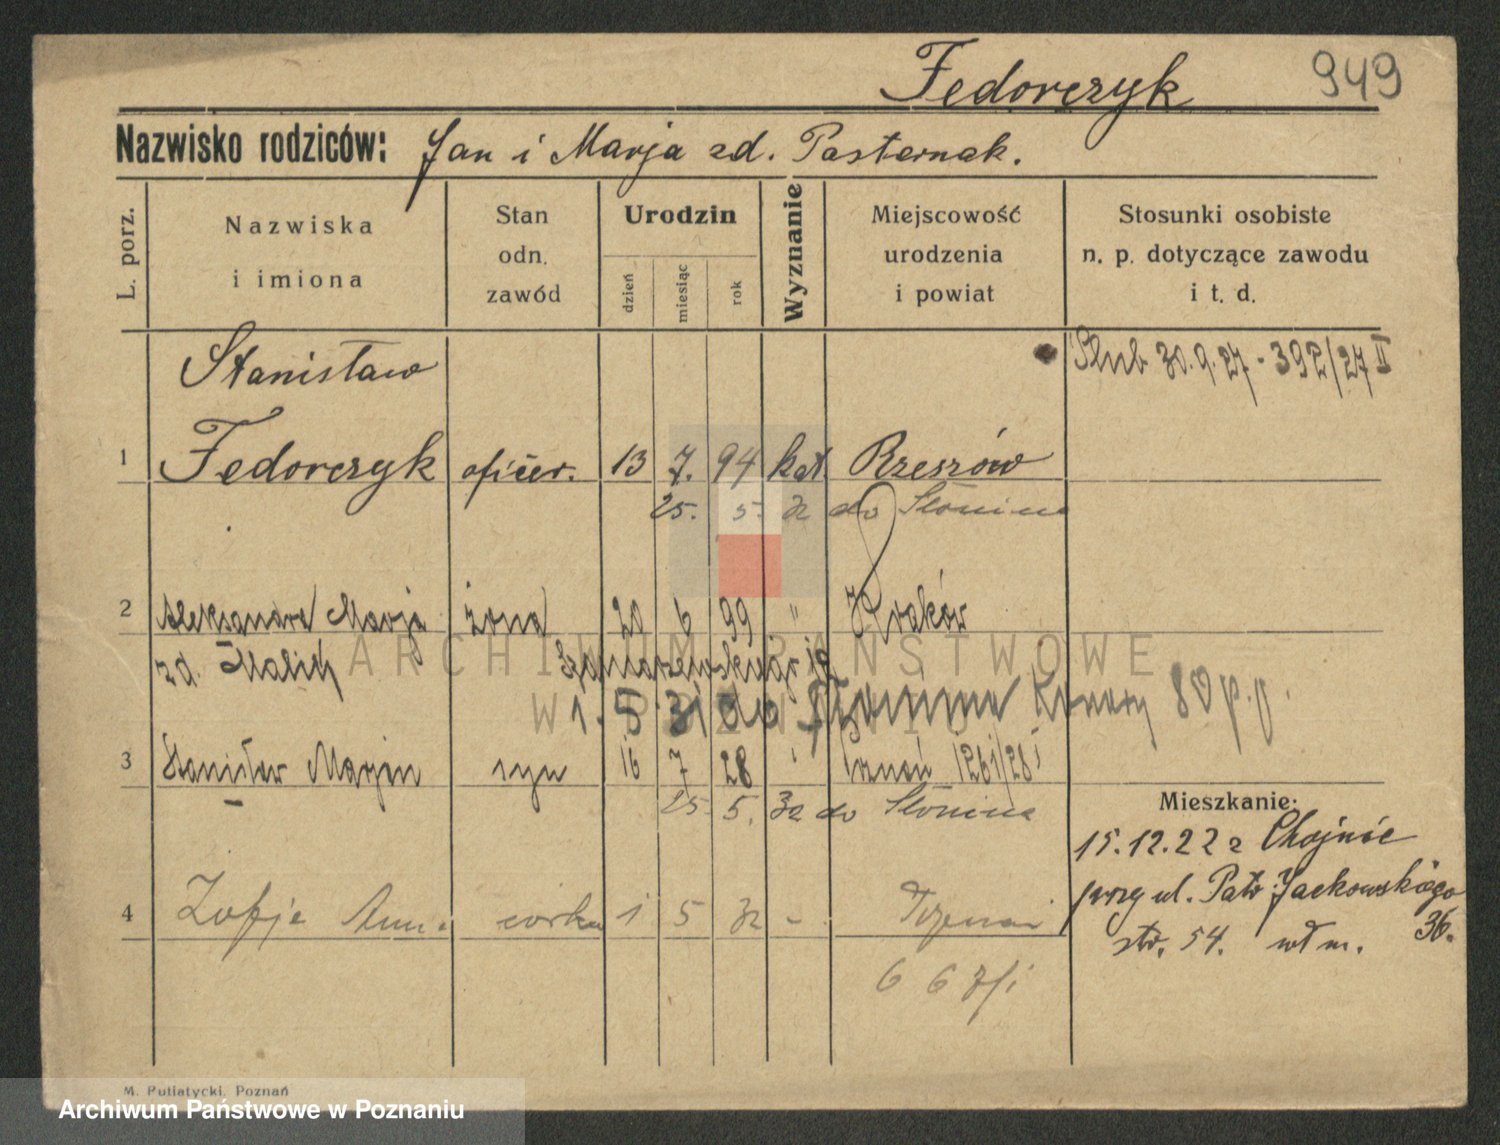 Fedorczyk 949
Nazwisko rodziców: Jan i Marja zd. Pasternak.
L. porz. Nazwiska i imiona Stan odn. zawód Urodzin dzień miesiąc rok Wyznanie Miejscowość urodzenia i powiat Stosunki osobiste n. p. dotyczące zawodu i t. d.
Stanisław Ślub 30.9.27 - 392/27 II
1 Fedorczyk oficer. 13 7. 94 kat Rzeszów
25. 5. 32 do Słonima
2 Aleksandra Marja żona 20 6 99 " Kraków
zd. Malich
1. 5. 31 do 80 p.p.
3 Stanisław Marjan syn 16 7 28 " 1261/28
25. 5. 32 do Słonima
Mieszkanie:
15.12.22 z Chojnic
przy ul. Patr. Jackowskiego
36.
str. 54. wł m.
4 Zofja Anna córka 1 5 32 -
ARCHIWUM PAŃSTWOWE
W POZNANIU
M. Putiatycki, Poznań
Archiwum Państwowe w Poznaniu